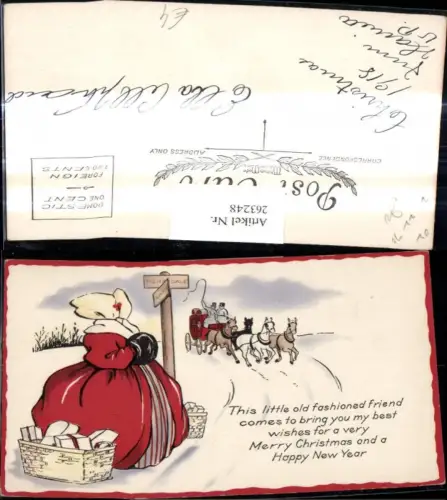 Christmas
1918
from
Ella Allphrand
E4
CORRESPONDENCE
ADDRESS ONLY
Post Card
DOMESTIC
ONE CENT
FOREIGN
TWO CENTS
Artikel Nr.
263248
This little old fashioned friend
comes to bring you my best
wishes for a very
Merry Christmas and a
Happy New Year